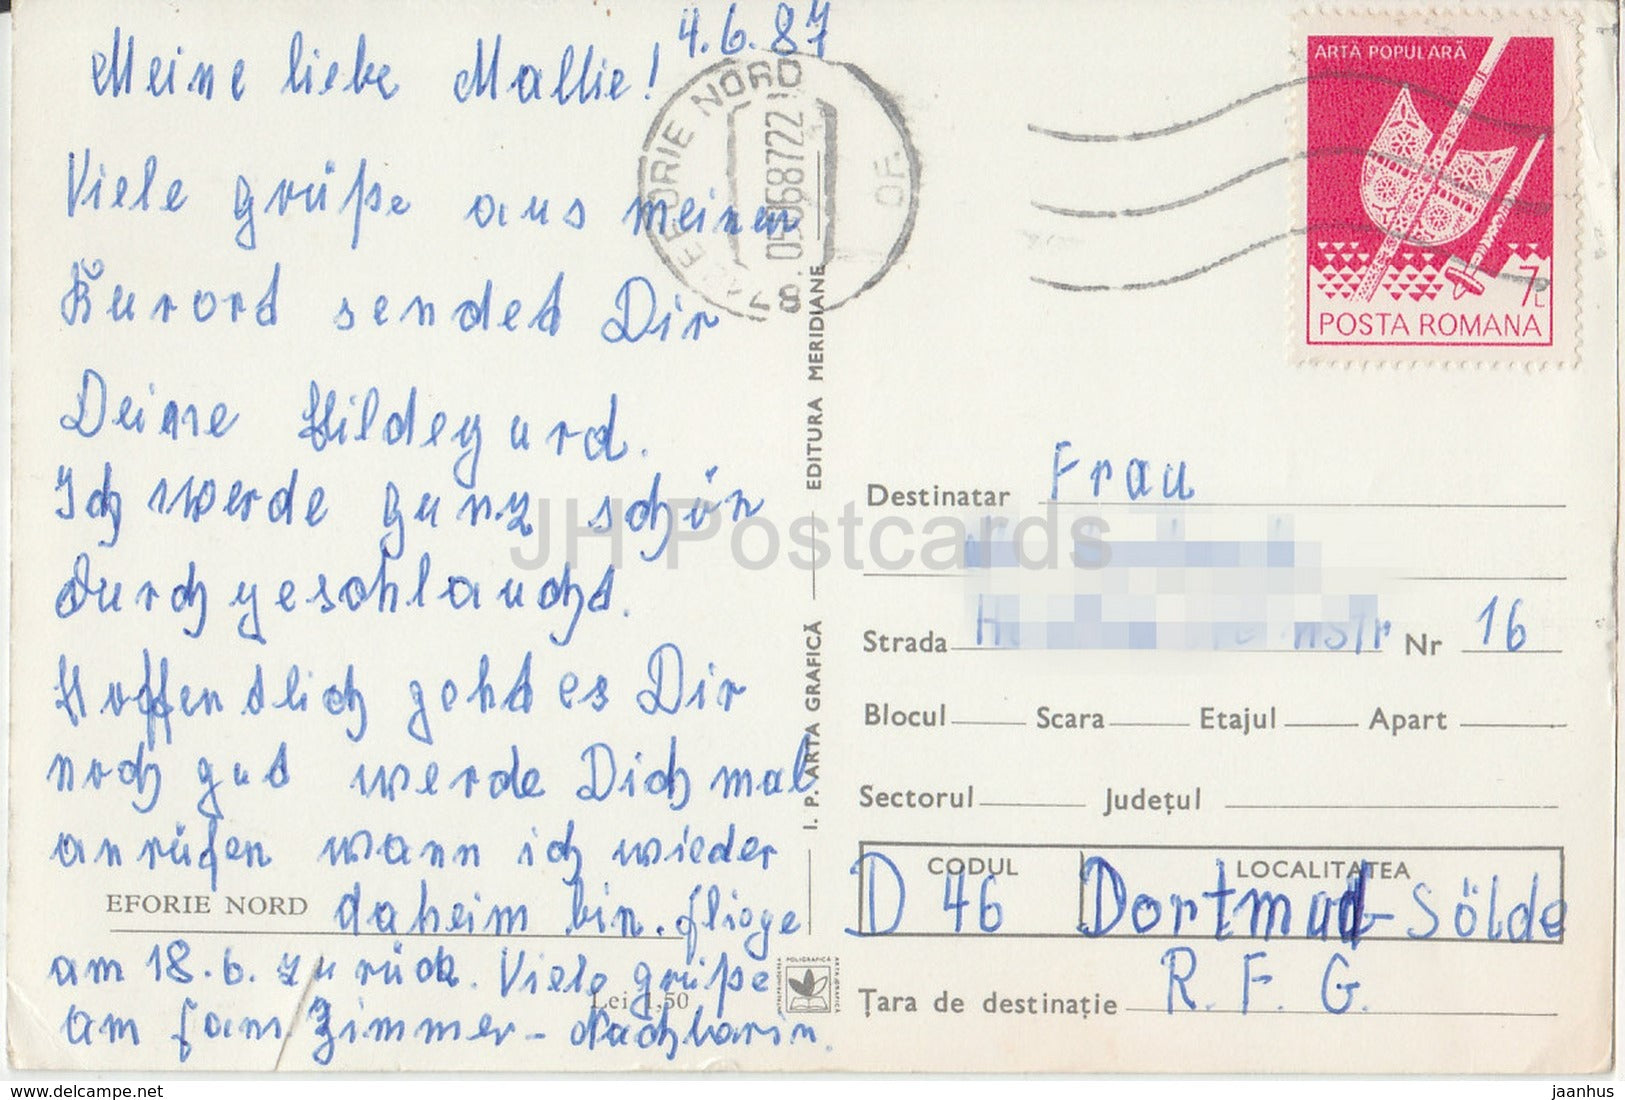 4.6.87
Meine liebe Mallie!
Viele grüße aus meinem
Kurort sendet Dir
Deine Hildegurd.
Ich werde ganz schön
durchgeschlaucht.
Hoffendlich geht es Dir
noch gut werde Dich mal
anrufen wann ich wieder
daheim bin. fliege
am 18.6. zurück. Viele grüße
am Zimmer-Nachbarin.
EFORIE NORD
Lei 1,50
EFORIE NORD
05.06.87 22
8
OF.
I. P. ARTA GRAFICĂ
EDITURA MERIDIANE
POLIGRAFICA
ARTA GRAFICA
ARTA POPULARĂ
7L
POSTA ROMANA
Destinatar Frau
Strada Nr 16
Blocul Scara Etajul Apart
Sectorul Județul
CODUL LOCALITATEA
D 46 Dortmud-Sölde
Țara de destinație R. F. G.
JH Postcards
www.delcampe.net
jaanhus